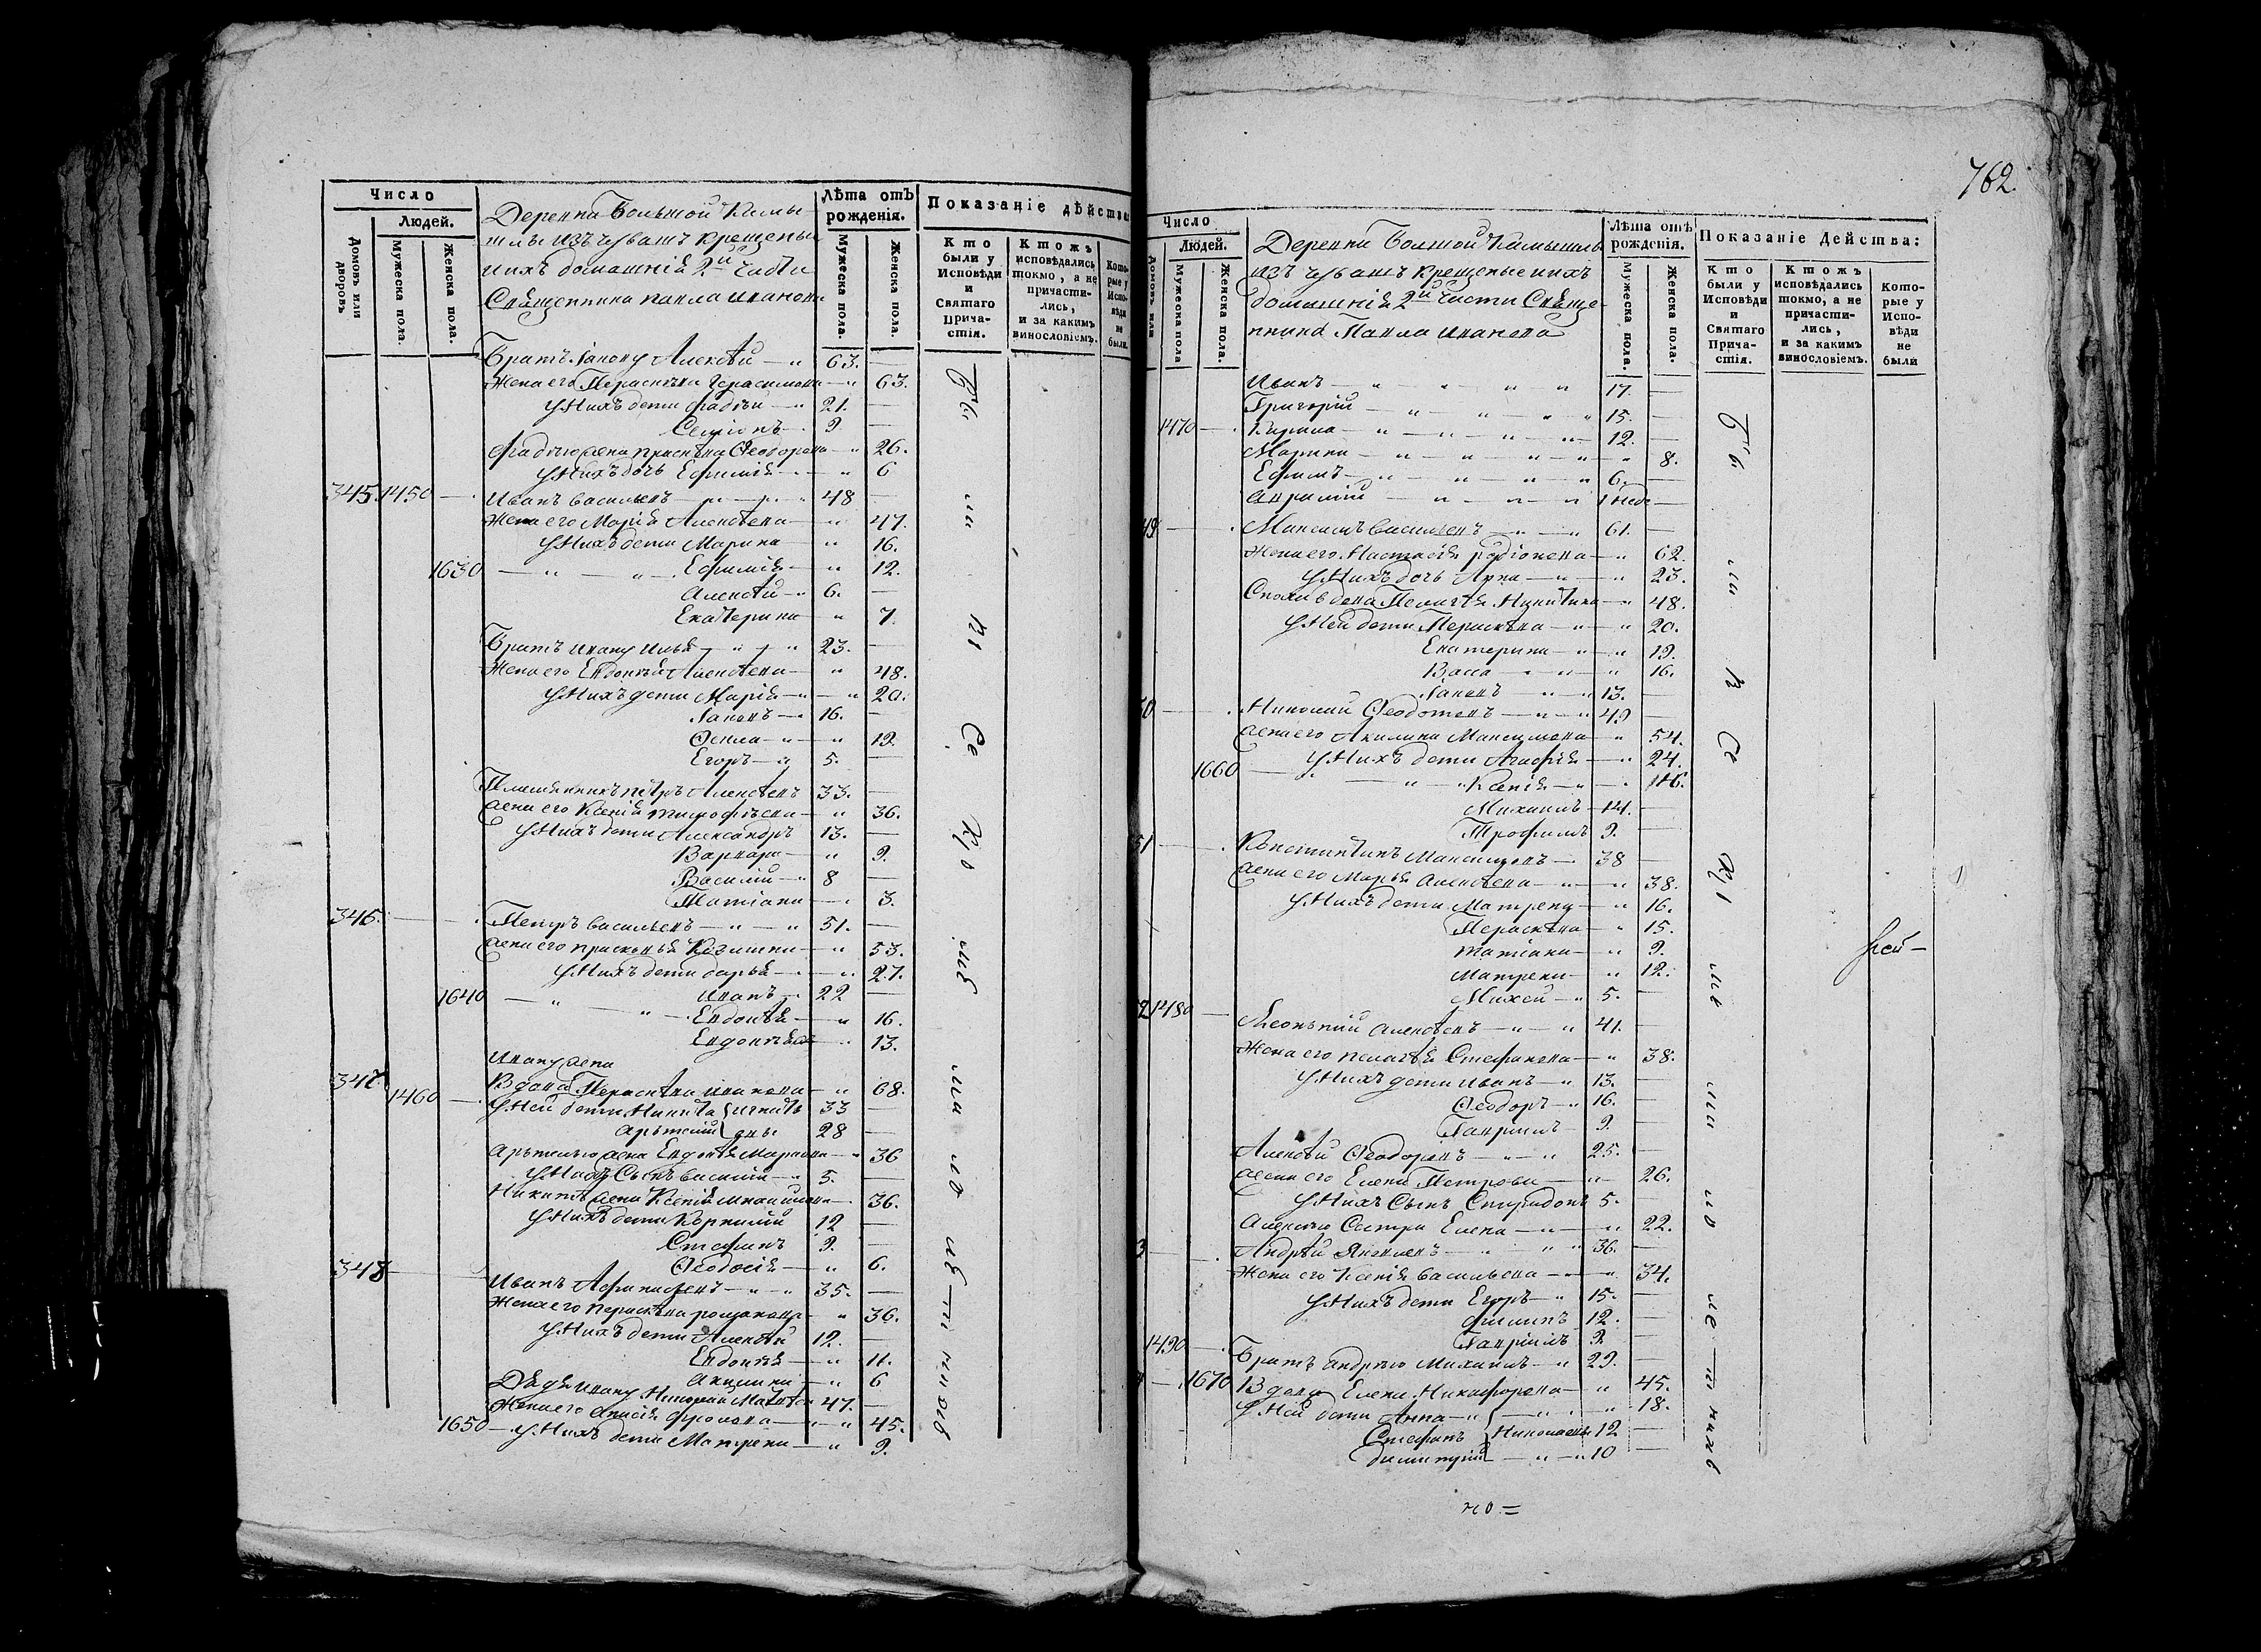 Число
Людей.
Домовъ или дворовъ
Мужеска пола.
Женска пола.
Деревна Большой Камы
шлы изъ чувашъ крещены
ихъ домашнія 2й части
Священника павла иванова
Лѣта отъ рожденія.
Мужеска пола.
Женска пола.
Показаніе дѣйства
Кто были у Исповѣди и Святаго Прича-стія.
Ктожъ исповѣдались токмо, а не причасти-лись, и за какимъ винословіемъ.
Кото-рые у Испо-вѣди не были.
Братъ Іакову Алексѣй — 63. —
Жена его Пераскѣва Герасимова — 63.
У Нихъ дети фадѣй — 21. —
Семіонъ — 9 —
Фадѣю жена праскѣва Ѳеодорова — 26.
У Нихъ дочь Ефимія — 6
345. 1450 — Иванъ васильевъ — 48 —
Жена его Марія Алексѣева — 47.
У Нихъ дети Марина — 16.
1630 — Ефимія — 12.
Алексѣй — 6. —
Екатерина — 7.
Братъ ивану Илья — 23. —
Жена его Евдокѣя Алексѣева — 48.
У Нихъ дети Марія — 20.
Іаковъ — 16. —
Ѳекла — 12.
Егоръ — 5. —
Племянникъ петръ Алексѣевъ 33. —
жена его Ксенія тимофѣева — 36.
У Нихъ дети Александръ 13. —
Варвара — 9.
Василій — 8 —
Татіана — 3.
346. — Петръ васильевъ — 51. —
жена его прасковья Козмина — 53.
У Нихъ дети дарья — 27.
1640 — Иванъ — 22 —
Евдокѣя — 16.
Евдокѣя — 13.
Ивану жена
347. Вдова Пераскѣва иванова — 68.
1460 — У Ней дети Никита 33 —
арьтемій 28 —
Арьтемью жена Евдокѣя Маркова — 36
У Нихъ Сынъ василій — 5. —
Никитѣ жена Ксенія 36.
У Нихъ дети Корнилій 12 —
Стефанъ 9. —
Ѳеодосія — 6.
348 — Иванъ Афанасьевъ — 35. —
Жена его пераскѣва романова — 36.
У Нихъ дети Алексѣй 12. —
Евдокѣя — 11.
Акилина — 6
Дядя ивану Николай 47. —
Жена его анисія фролова — 45.
1650 — У Нихъ дети Матрена — 9.
762.
Число
Людей.
Домовъ или
Мужеска пола
Женска пола.
Деревни Болшой Камышлы
изъ чувашъ крещеные ихъ
домашнія 2й части Свяще
нника Павла иванова
Лѣта отъ рожденія.
Мужеска пола.
Женска пола.
Показаніе Действа:
Кто были у Исповѣди и Святаго Прича-стія.
Ктожъ исповѣдались токмо, а не причасти-лись, и за какимъ винословіемъ.
Кото-рые у Испо-вѣди не были
Иванъ — 17. —
Григорій — 15. —
1470 — Кирила — 12. —
Марина — 8.
Ефимъ — 6. —
49 — Максимъ васильевъ — 61. —
Жена его Настасія родіонова — 62.
У Нихъ дочь Арина — 23.
Сноха вдова Пелагѣя Никитина — 48.
У Ней дети Пераскѣва — 20.
Екатерина — 19.
Васса — 16.
Іаковъ — 13. —
50 — Николай Ѳеодотовъ — 49 —
жена его Акилина Максимова — 54.
У Нихъ дети Агафія — 24.
1660 — Ксенія — 16.
Михаилъ — 14. —
Трофимъ 9. —
51 — Констянтинъ Максимовъ — 38 —
жена его Марья алексѣева — 38.
У Нихъ дети Матрена — 16.
Пераскѣва — 15.
татіана — 9.
матрена — 12.
Михей — 5. —
52 1480 — Леонътий алексѣевъ — 41. —
Жена его пелагѣя Стефанова — 38.
У Нихъ дети иванъ — 13. —
Ѳеодоръ — 16. —
Гаврилъ — 9. —
Алексѣй Ѳеодоровъ — 25. —
жена его Елена Петрова — 26.
У Нихъ Сынъ Спиридонъ 5. —
Алексѣю Сестра Елена — 22.
3 — Андрѣй Яковлевъ — 36. —
Жена его Ксенія васильева — 34.
У Нихъ дети Егоръ — 15. —
филипъ 12. —
1490 — Гаврилъ 9. —
Братъ андрѣю Михаилъ — 29. —
1670 Вдова Елена Никифорова — 45.
У Ней дети Анна — 18.
Стефанъ Николаевы 12 —
димитрій — 10 —